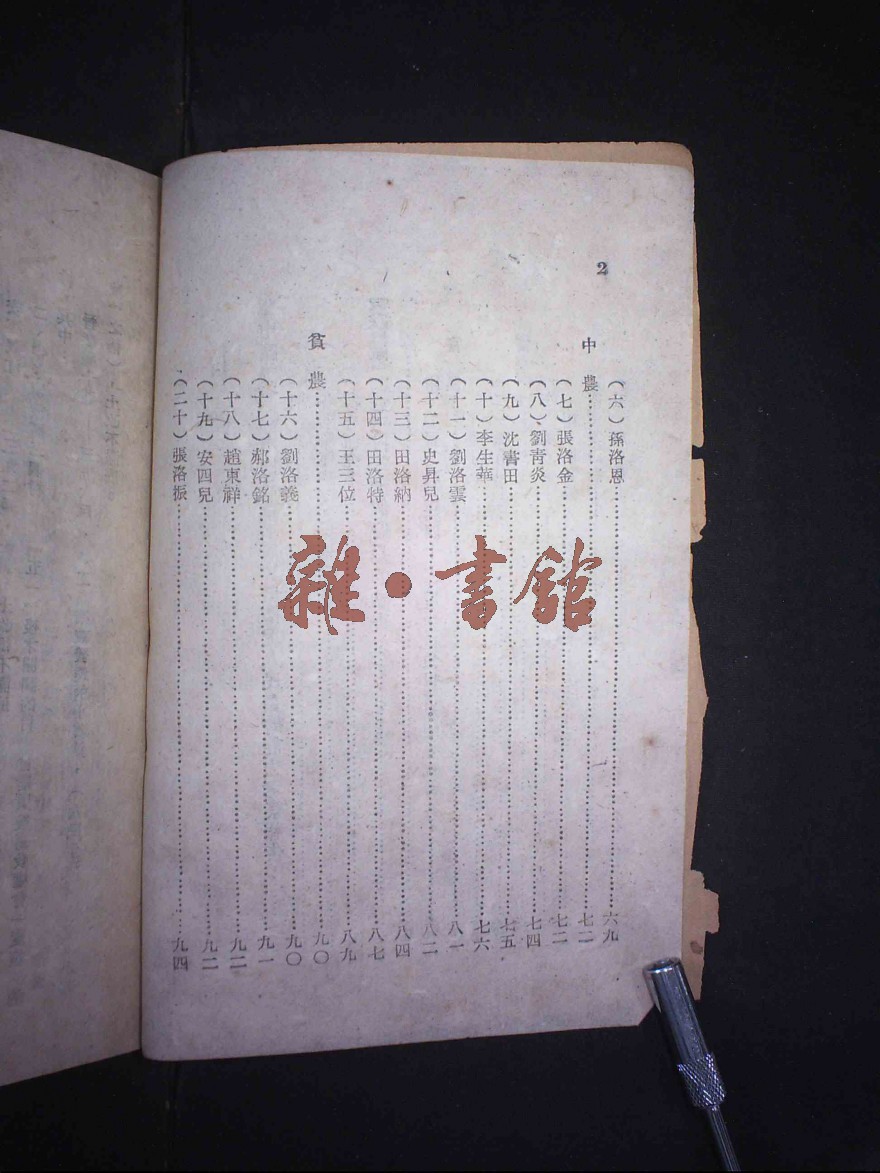 2
（六）孫洛恩……六九
中　農……七二
（七）張洛金……七二
（八）劉青炎……七四
（九）沈書田……七五
（十）李生華……七六
（十一）劉洛雲……八一
（十二）史昇兒……八二
（十三）田洛納……八四
（十四）田洛特……八七
（十五）王三位……八九
貧　農……九〇
（十六）劉洛義……九〇
（十七）郝洛銘……九一
（十八）趙東祥……九二
（十九）安四兒……九二
（二十）張洛振……九四
雜·書館